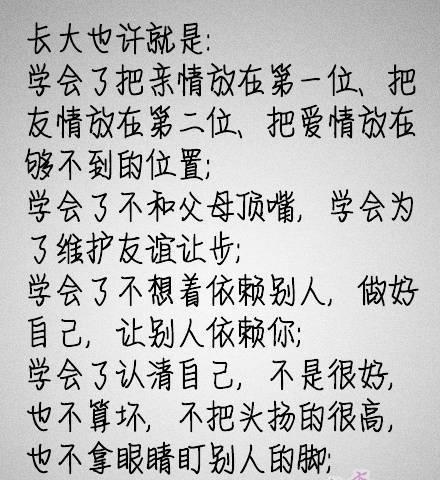 长大也许就是:
学会了把亲情放在第一位、把
友情放在第二位、把爱情放在
够不到的位置;
学会了不和父母顶嘴,学会为
了维护友谊让步;
学会了不想着依赖别人,做好
自己,让别人依赖你;
学会了认清自己,不是很好,
也不算坏,不把头扬的很高,
也不拿眼睛盯别人的脚;